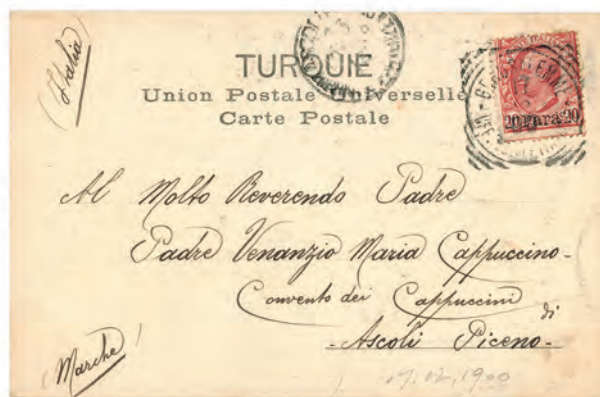 (Italia)
TURQUIE
Union Postale Universelle
Carte Postale
20 Para 20
Al Molto Reverendo Padre
Padre Venanzio Maria Cappuccino-
Convento dei Cappuccini
di
-Ascoli Piceno-
(Marche)